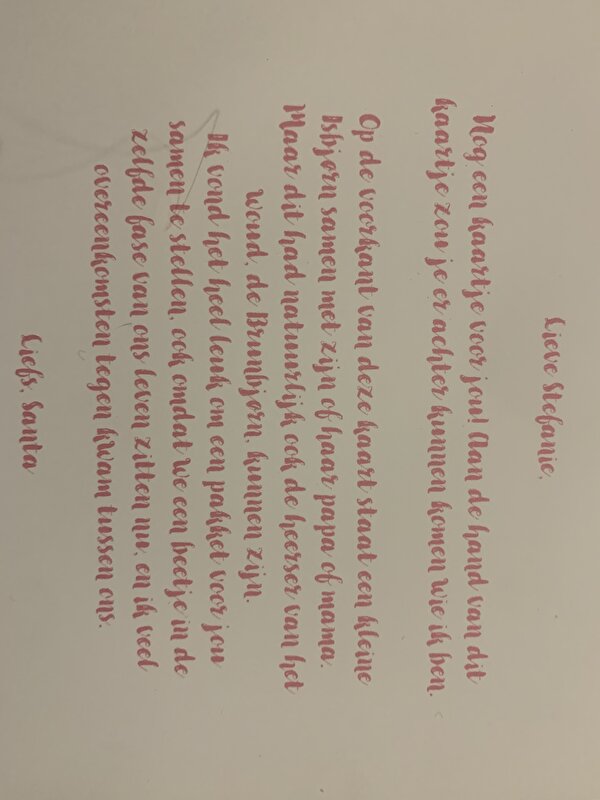 Lieve Stefanie,
Nog een kaartje voor jou! Aan de hand van dit
kaartje zou je er achter kunnen komen wie ik ben.
Op de voorkant van deze kaart staat een kleine
Isbjørn samen met zijn of haar papa of mama.
Maar dit had natuurlijk ook de heerser van het
woud, de Brunbjørn, kunnen zijn.
Ik vond het heel leuk om een pakket voor jou
samen te stellen, ook omdat we een beetje in de
zelfde fase van ons leven zitten nu, en ik veel
overeenkomsten tegen kwam tussen ons.
Liefs, Santa